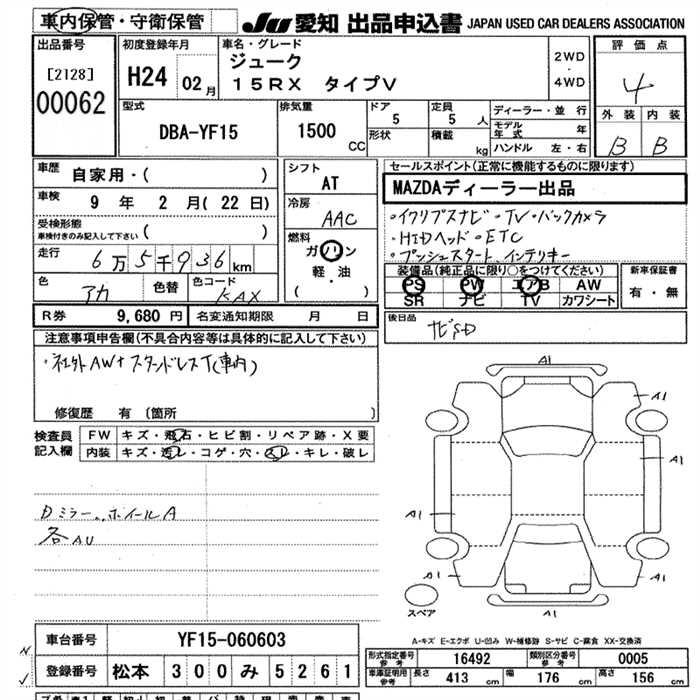 車内保管・守衛保管
JU 愛知 出品申込書 JAPAN USED CAR DEALERS ASSOCIATION
出品番号
[2128]
00062
初度登録年月
H24 02月
車名・グレード
ジューク
15RX タイプV
2WD
・
4WD
評価点
4
外装 内装
B B
型式
DBA-YF15
排気量
1500
CC
ドア
5
定員
5 人
形状
積載
kg
ディーラー・並行
モデル年式 年
ハンドル 左・右
車歴
自家用・( )
車検
9 年 2 月(22日)
受検形態
車検付きのみ記入して下さい ( )
走行
6万5千936km
色
アカ
色替
色コード
KAX
シフト
AT
冷房
AAC
燃料
ガソリン
軽・油
( )
セールスポイント(正常に機能するものに限ります)
MAZDAディーラー出品
・イクリプスナビ・TV・バックカメラ
・HIDヘッド・ETC
・プッシュスタート、インテリキー
装備品(純正品に限り○をつけてください)
PS PW エアB AW
SR ナビ TV カワシート
新車保証書
有・無
R券 9,680 円 名変通知期限 月 日
後日品
ナビSD
注意事項申告欄(不具合内容等は具体的に記入して下さい)
・社外AW+スタッドレスT(車内)
修復歴 有 〔箇所 〕
検査員記入欄
FW キズ・飛石・ヒビ割・リペア跡・X要
内装 キズ・汚レ・コゲ・穴・スレ・キレ・破レ
Dミラー、ホイールA
各AU
A1
A1
A1
A1
A1
A1
A1
スペア
A-キズ E-エクボ U-凹み W-補修跡 S-サビ C-腐食 XX-交換済
車台番号 YF15-060603
登録番号 松本 300 み 5261
形式指定番号 参考 16492 類別区分番号 参考 0005
車庫証明用 参考 長さ 413 cm 幅 176 cm 高さ 156 cm